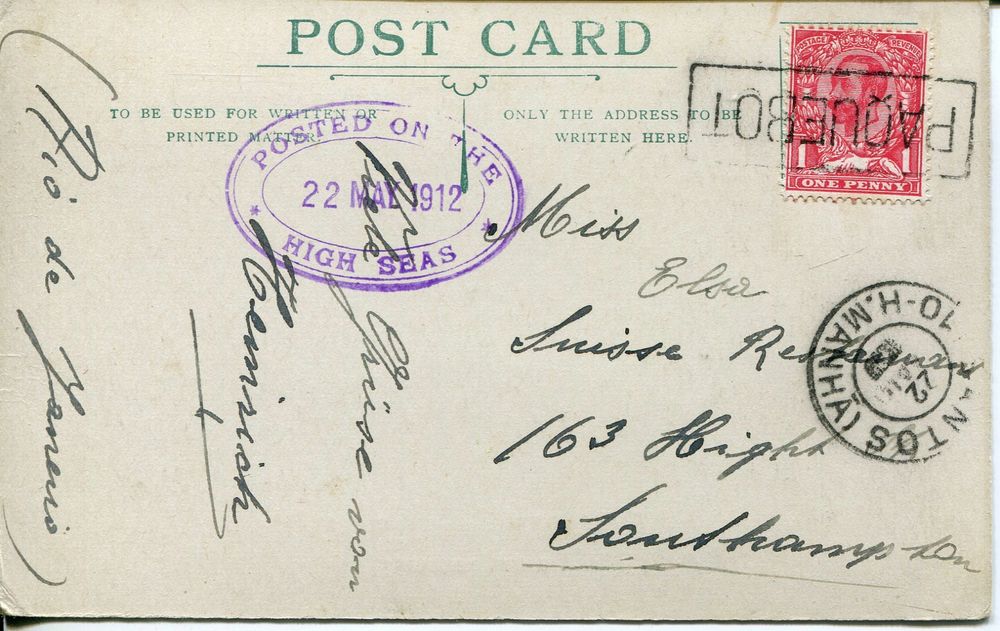 POST CARD
TO BE USED FOR WRITTEN OR
PRINTED MATTER.
ONLY THE ADDRESS TO BE
WRITTEN HERE.
PAQUEBOT
POSTAGE REVENUE
ONE PENNY
1 1
POSTED ON THE
22 MAY 1912
HIGH SEAS
Miss
Elsa
Suisse Restaurant
163 Hight
Southampton
SANTOS
10-H.MANHÃ)
22
(Rio de Janeiro)
Grüsse von
Heinrich